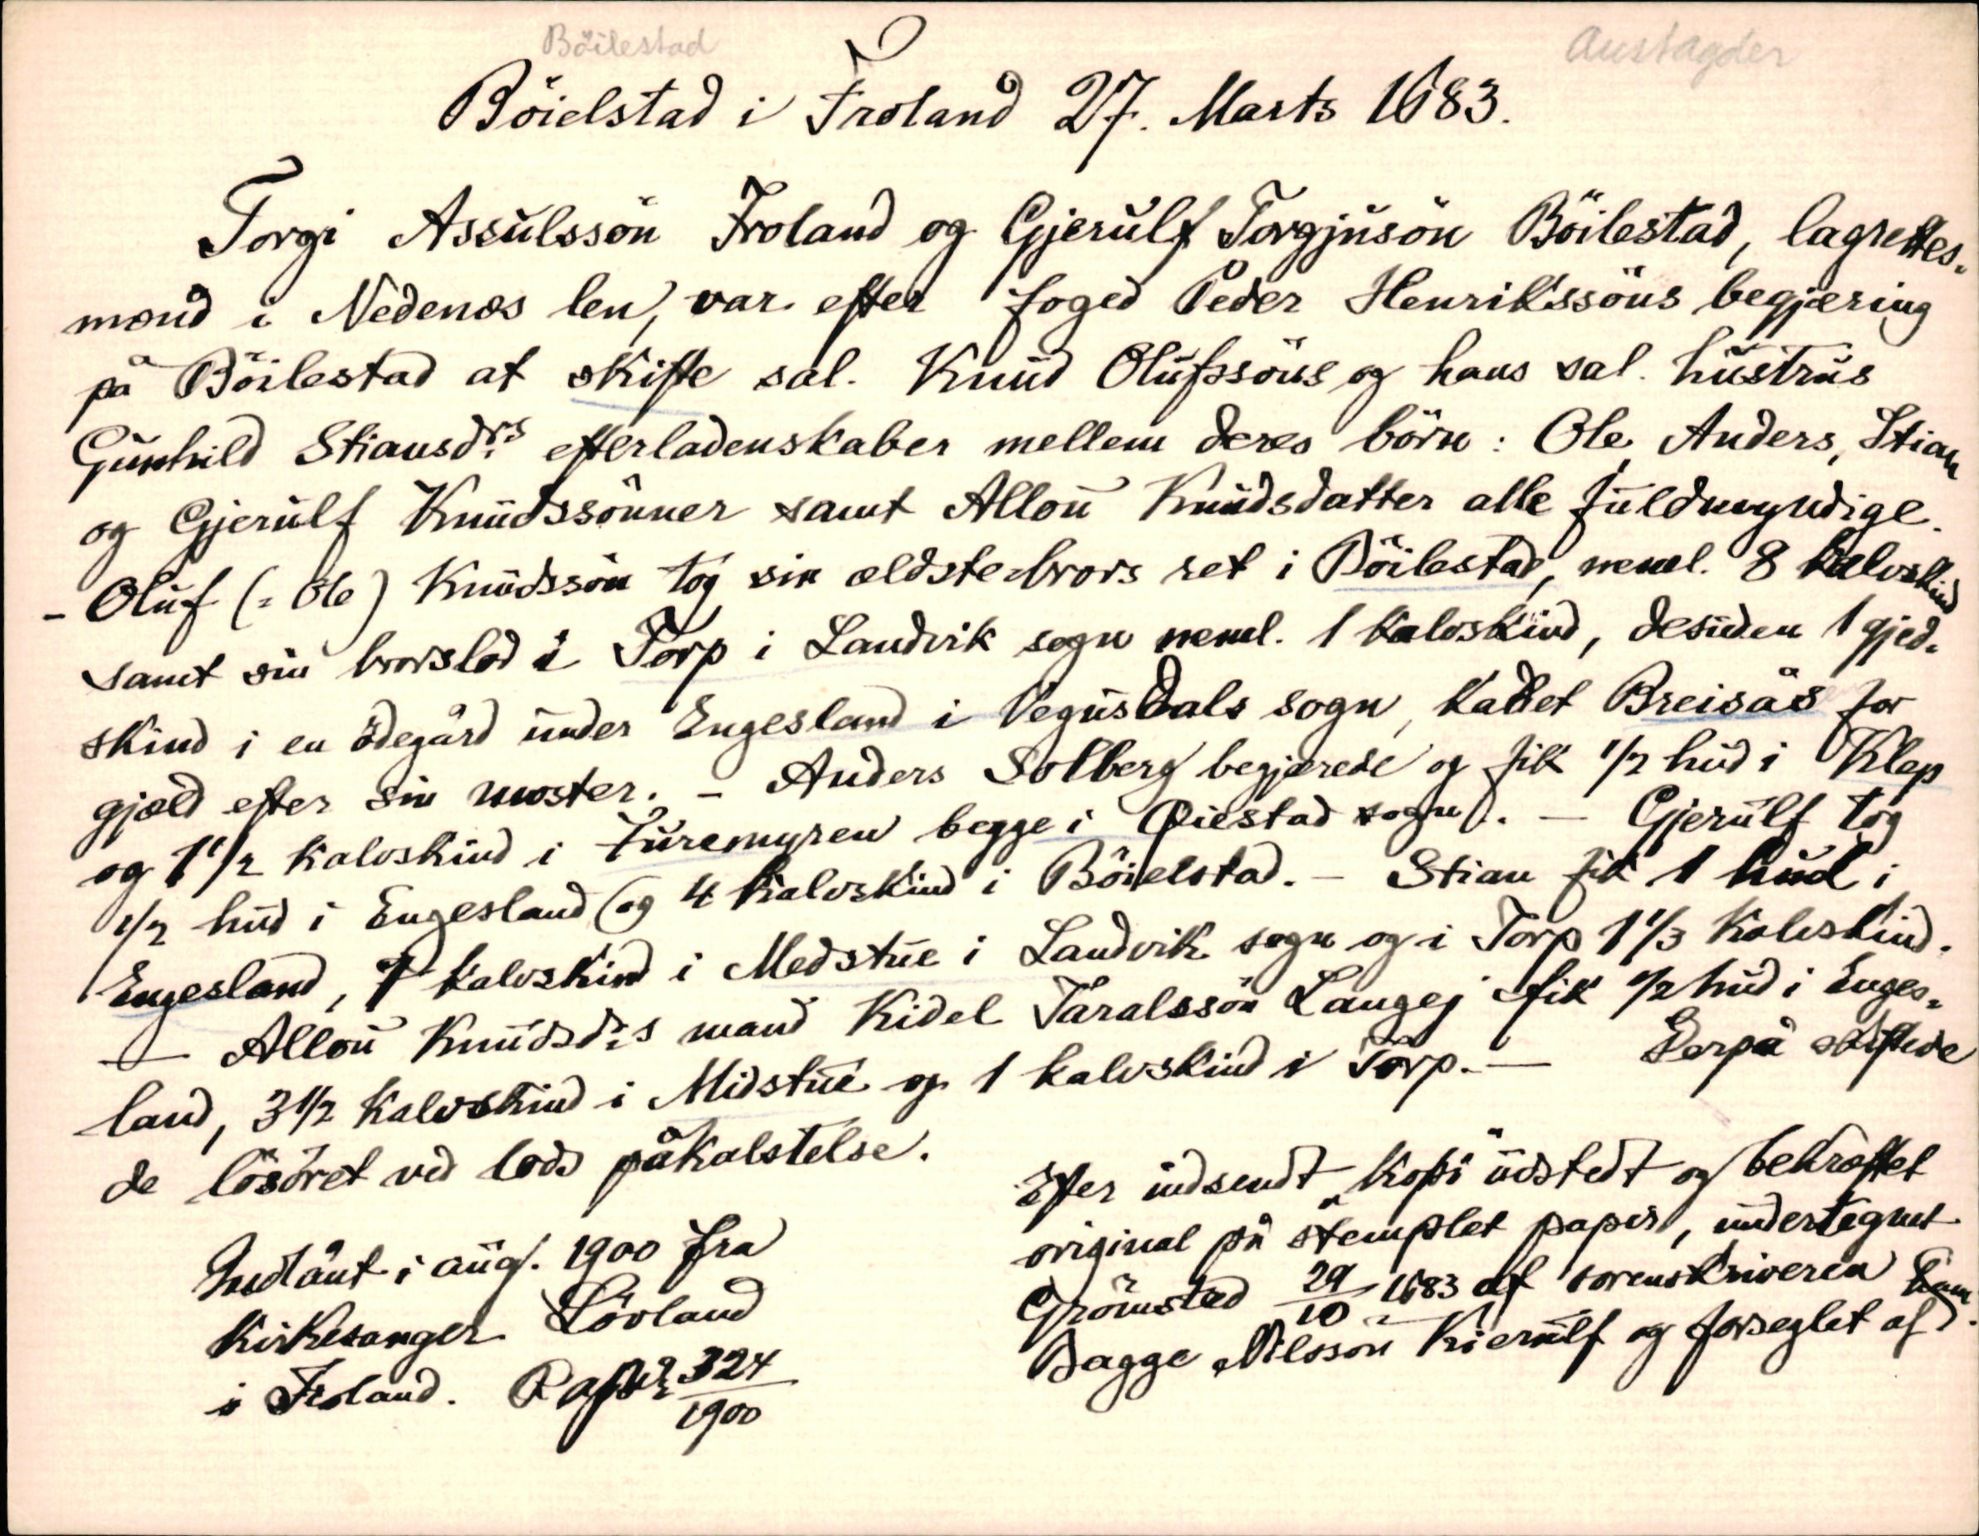 Böilestad
Austagder
Böielstad i Froland 27. Marts 1683.
Torgi Assulssön Froland og Gjerulf Torgjusön Böilestad, lagrettes-
mænd i Nedenæs len, var efter foged Peder Henrikssöns begjæring
på Böilestad at skifte sal. Knud Olufssöns og hans sal. hustrus
Gunhild Stiansdrs efterladenskaber mellem deres börn: Ole, Anders, Stian
og Gjerulf Knudssönner samt Allou Knudsdatter alle fuldmyndige.
- Oluf (= Ole) Knudssön tog sin ældste brors ret i Böilestad, neml. 8 kalvskind
samt sin brorslod i Torp i Landvik sogn neml. 1 kalvskind, desuden 1 gjed-
skind i en ödegård under Engesland i Vegusdals sogn, kaldet Breisås for
gjæld efter sin moster. - Anders Solberg begjærede og fik 1/2 hud i Klep
og 1 1/2 kalvskind i Furemyren begge i Öiestad sogn. - Gjerulf tog
1/2 hud i Engesland og 4 kalvskind i Böielstad. - Stian fik 1 hud i
Engesland, 7 kalvskind i Medstue i Landvik sogn og i Torp 1 1/3 kalvskind.
- Allou Knudsdrs mand Kidel Taralssön Langej fik 1/2 hud i Enges-
land, 3 1/2 kalvskind i Midstue og 1 kalvskind i Torp. - Derpå skiftede
de lösöret ved lods påkalstelse.
Efter indsendt kopi udstedt og bekræftet
original på stemplet papir, undertegnet
Grömsted 29/10 1683 af sorenskriveren
Bagge Nilssön Kierulf og forseglet af ham.
Indlånt i aug. 1900 fra
kirkesanger Lövland
i Froland. 324/1900